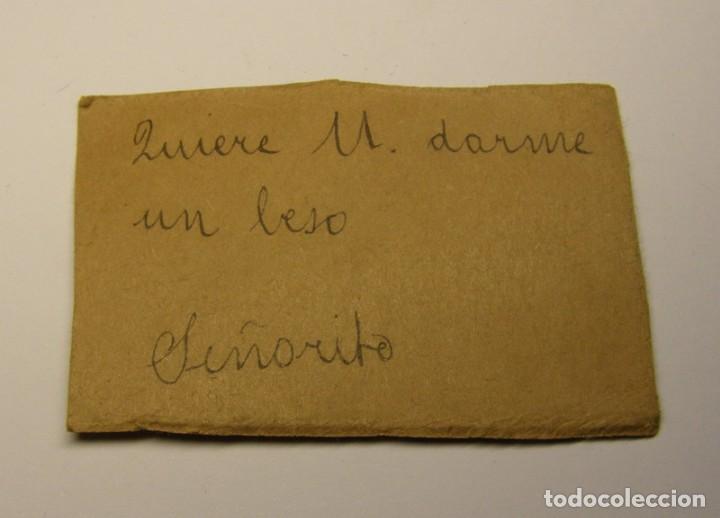 Quiere U. darme
un beso
Señorito
todocoleccion